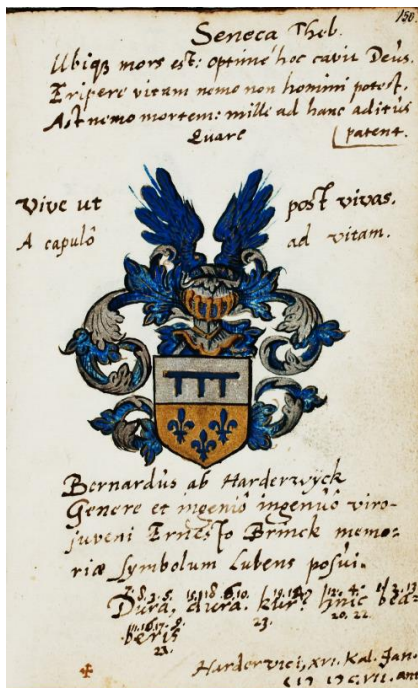 150
Seneca Theb.
Ubiq; mors est: optimè hoc cavit Deus.
Eripere vitam nemo non homini potest,
Ast nemo mortem: mille ad hanc aditus
patent.
Quare
vive ut post vivas.
A capulô ad vitam.
Bernardus ab Harderwÿck
Genere et ingeniô ingenuô viro-
juveni Ernesto Brinck memo-
riæ symbolum Lubens posui.
Dura, dura. hinc bea-
23. 20. 22.
beris
Hardervici, xvi. Kal. Jan.